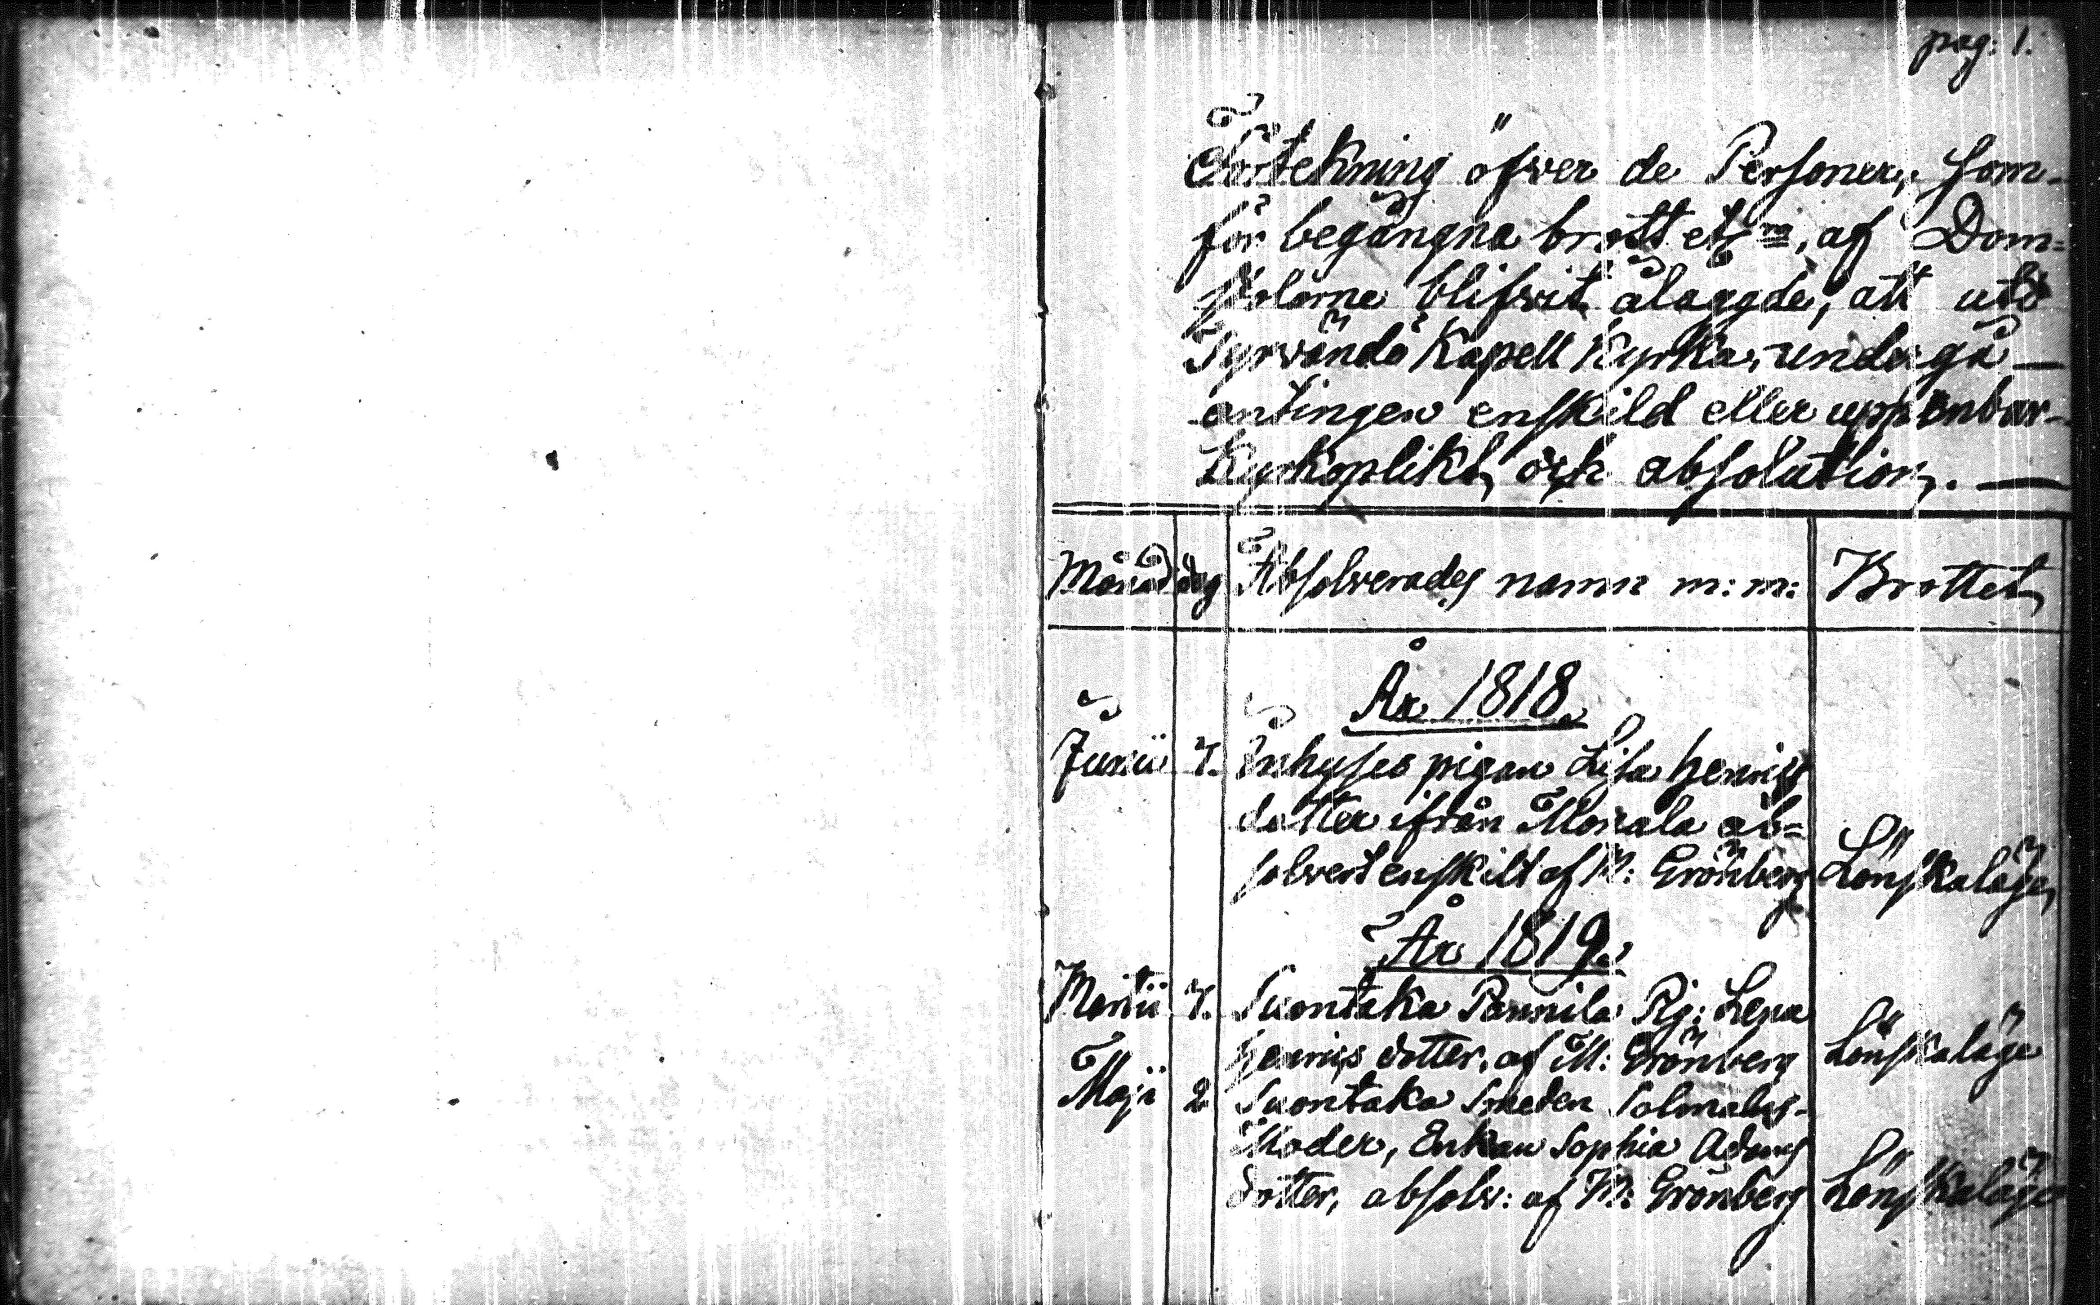 pag: 1.
Förtekning öfver de Personer, som
för begångna brott etc ra, af Dom=
stolarne blifvit ålaggde, att uti
Tyrvändö Kapell Kyrka, undergå —
antingen enskild eller uppenbar
Kyrkoplikt, och absolution. —
Månad dag Absolverades namn m:m: Brottet
År 1818.
Junii 7. Inhyses pigan Lisa Henrics
dotter ifrån Monala ab=
solvert enskilt af M: Grönberg Lönskaläge,
År 1819.
Martii 7. Suontaka Pannila Pig: Lena
Henrics dotter, af M: Grönberg Lönskaläge
Maji 2 Suontaka Smeden Salmelus
Moder, Enkan Sophia Adams
dotter, absolv: af M: Grönberg Lönskaläge